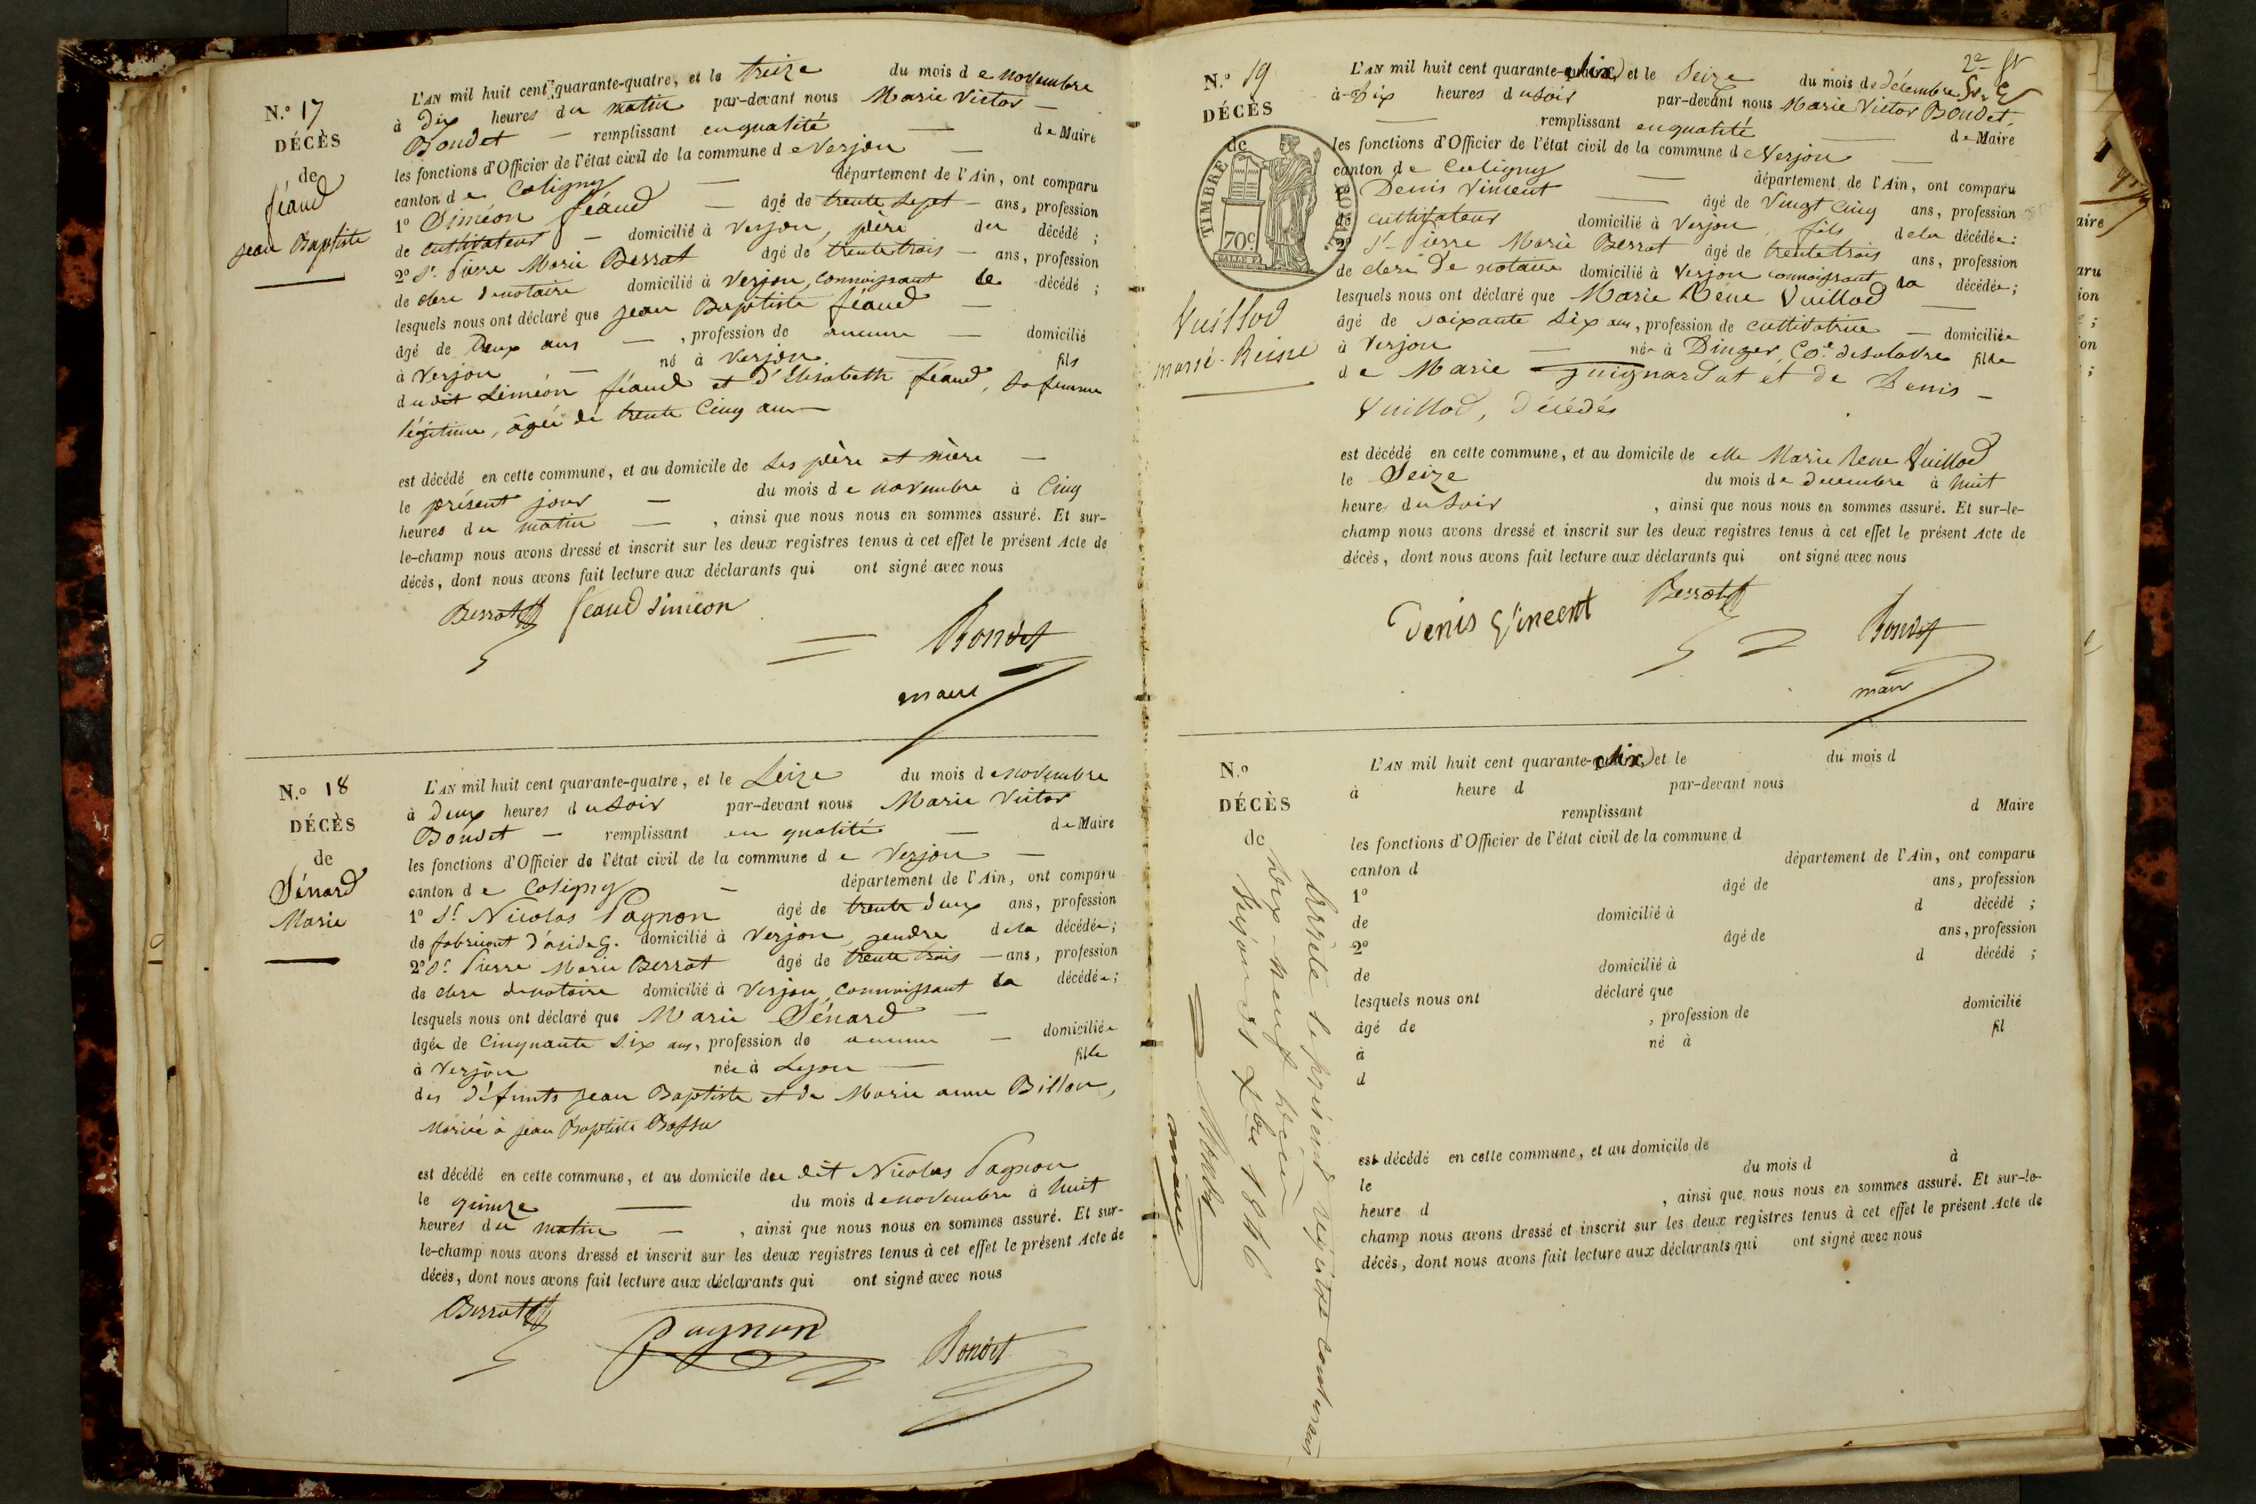 N.° 17
DÉCÈS
de
féaud
jean Baptiste
L'AN mil huit cent quarante-quatre, et le treize du mois de novembre
à dix heures du matin par-devant nous Marie Victor
Bondet remplissant en qualité de Maire
les fonctions d'Officier de l'état civil de la commune de Verjon
canton de Coligny département de l'Ain, ont comparu
1° Siméon féaud âgé de trente sept ans, profession
de cultivateur domicilié à Verjon, père du décédé ;
2° Sr. Pierre Marie Berrat âgé de trente trois ans, profession
de clerc de notaire domicilié à Verjon, connoissant le décédé ;
lesquels nous ont déclaré que jean Baptiste féaud
âgé de Deux ans , profession de aucune domicilié
à Verjon né à Verjon fils
dudit Siméon féaud et d'Elisabeth féaud, sa femme
légitime, âgée de trente cinq ans
est décédé en cette commune, et au domicile de ses père et mère
le présent jour du mois de novembre à Cinq
heures du matin , ainsi que nous nous en sommes assuré. Et sur-
le-champ nous avons dressé et inscrit sur les deux registres tenus à cet effet le présent Acte de
décès, dont nous avons fait lecture aux déclarants qui ont signé avec nous
Berrat féaud Siméon
Bondet
maire
N.° 18
DÉCÈS
de
Sénard
Marie
L'AN mil huit cent quarante-quatre, et le Seize du mois de novembre
à deux heures du soir par-devant nous Marie Victor
Bondet remplissant en qualité de Maire
les fonctions d'Officier de l'état civil de la commune de Verjon
canton de Coligny département de l'Ain, ont comparu
1° Sr. Nicolas Pagnon âgé de trente deux ans, profession
de fabricant d'acide G. domicilié à Verjon, gendre de la décédée ;
2° Sr. Pierre Marie Berrat âgé de trente trois ans, profession
de clerc de notaire domicilié à Verjon, connoissant la décédée ;
lesquels nous ont déclaré que Marie Sénard
âgée de Cinquante six ans, profession de aucune domiciliée
à Verjon née à Lyon fille
des défunts jean Baptiste et de Marie anne Billon,
Mariée à jean Baptiste Bossu
est décédé en cette commune, et au domicile du dit Nicolas Pagnon
le quinze du mois de novembre à huit
heures du matin , ainsi que nous nous en sommes assuré. Et sur-
le-champ nous avons dressé et inscrit sur les deux registres tenus à cet effet le présent Acte de
décès, dont nous avons fait lecture aux déclarants qui ont signé avec nous
Berrat Pagnon Bondet
2e
N.° 19
DÉCÈS
de
TIMBRE ROYAL
70c
Vuillod
marie-Reine
L'AN mil huit cent quarante-six et le Seize du mois de décembre
à Dix heures du soir par-devant nous Marie Victor Bondet
remplissant en qualité de Maire
les fonctions d'Officier de l'état civil de la commune de Verjon
canton de Coligny département de l'Ain, ont comparu
1° Denis Vincent âgé de Vingt Cinq ans, profession
de cultivateur domicilié à Verjon, fils de la décédée :
2° Sr. Pierre Marie Berrat âgé de trente trois ans, profession
de clerc de notaire domicilié à Verjon connoissant la décédée ;
lesquels nous ont déclaré que Marie Rène Vuillod
âgé de Soixante Six ans, profession de cultivatrice domiciliée
à Verjon née à Dinger, Coe. de Salavre fille
de Marie guignardat et de Denis
Vuillod, décédés
est décédé en cette commune, et au domicile de elle Marie Rene Vuillod
le Seize du mois de decembre à huit
heures du soir , ainsi que nous nous en sommes assuré. Et sur-le-
champ nous avons dressé et inscrit sur les deux registres tenus à cet effet le présent Acte de
décès, dont nous avons fait lecture aux déclarants qui ont signé avec nous
Denis Vincent Berrat Bondet
maire
N.°
DÉCÈS
de
L'AN mil huit cent quarante-six et le du mois d
à heure d par-devant nous
remplissant d Maire
les fonctions d'Officier de l'état civil de la commune d
canton d département de l'Ain, ont comparu
1° âgé de ans, profession
de domicilié à d décédé ;
2° âgé de ans, profession
de domicilié à d décédé ;
lesquels nous ont déclaré que
âgé de , profession de domicilié
à né à fil
d
est décédé en cette commune, et au domicile de
le du mois d à
heure d , ainsi que nous nous en sommes assuré. Et sur-le-
champ nous avons dressé et inscrit sur les deux registres tenus à cet effet le présent Acte de
décès, dont nous avons fait lecture aux déclarants qui ont signé avec nous
Arrêté le présent registre contenant
dix-neuf décès
Verjon 31 Xbre 1846
Bondet
maire